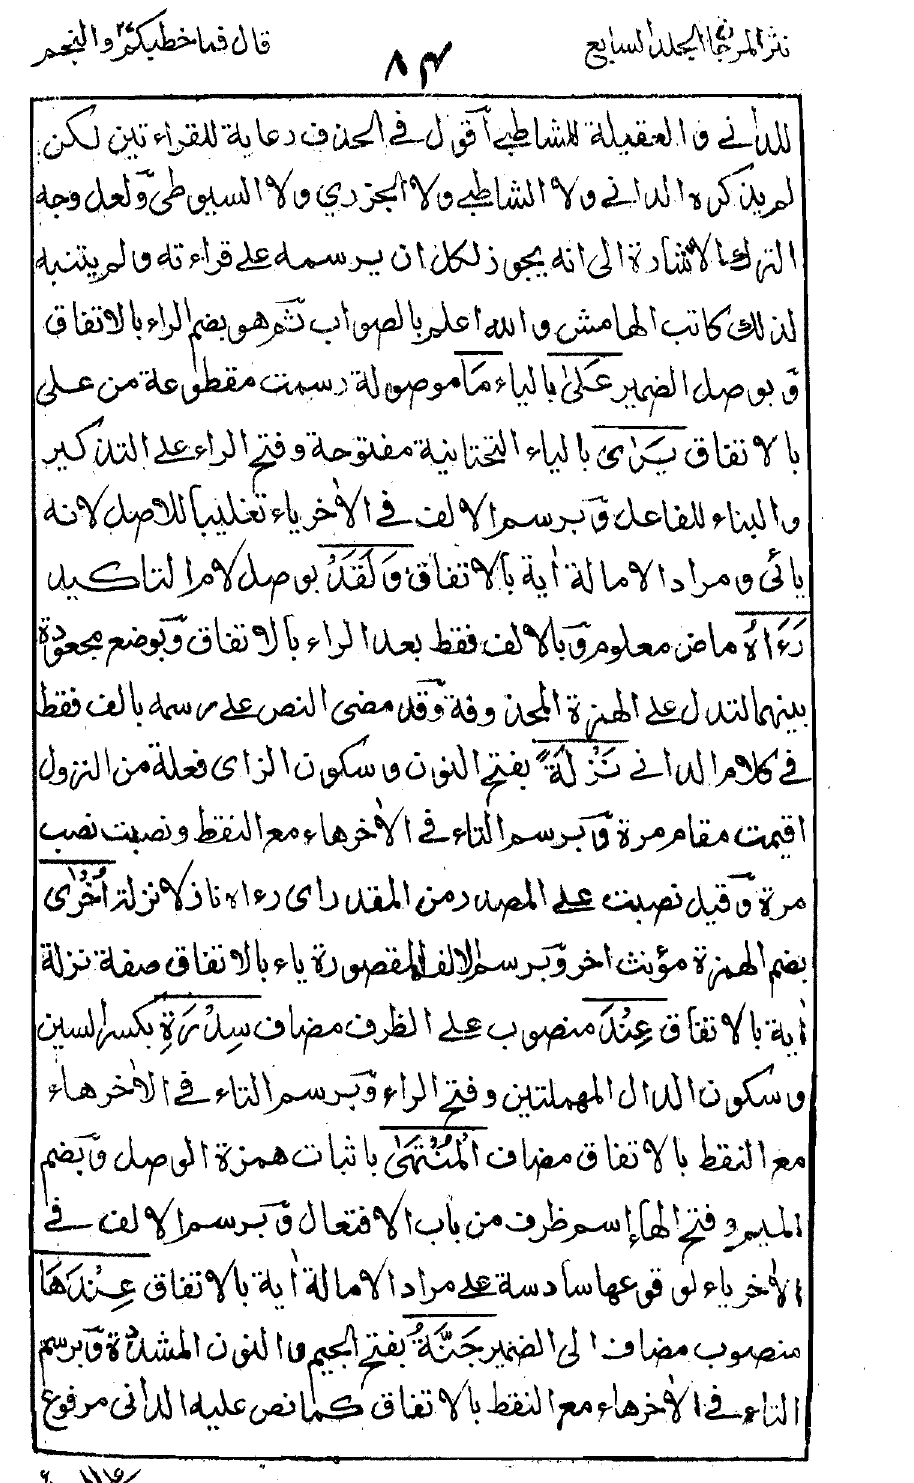 نثر المرجان الجلد السابع
٨٣
قال فما خطبكم ٢٧ والنجم
للداني والعقيلة للشاطبي أقول في الحذف رعاية للقراءتين لكن
لم يذكره الداني ولا الشاطبي ولا الجزري ولا السيوطي وَّلعل وجه
الترك الاشارة الى انه يجوز لكل ان يرسمه على قراءته ولم يتنبه
لذلك كاتب الهامش والله اعلم بالصواب ثم هو بضم الراء بالاتفاق
وَّ بوصل الضمير عَلىٰ بالياء مَا موصولة رسمت مقطوعة من على
بالاتفاق يَرٰى بالياء التحتانية مفتوحة وفتح الراء على التذكير
والبناء للفاعل وَّ برسم الالف في الاٰخر ياء تغليبا للاصل لانه
يائي ومراد الامالة اٰية بالاتفاق وَلَقَدْ بوصل لام التاكيد
رَءَاهُ ماض معلوم وَّ بالالف فقط بعد الراء بالاتفاق وَّ بوضع مجعودة
بينهما لتدل على الهمزة المحذوفة وَّقد مضى النص على رسمه بالف فقط
في كلام الداني نَزْلَةً بفتح النون وسكون الزاى فعلة من النزول
اقيمت مقام مرة وَّ برسم التاء في الاٰخر هاء مع النقط ونصبت نصب
مرة وَّقيل نصبت على المصدر من المقدر اى رءاه نازلا نزلة اُخْرٰى
بضم الهمزة مؤنث اخر وَّ برسم الالف المقصورة ياء بالاتفاق صفة نزلة
اٰية بالاتفاق عِنْدَ منصوب على الظرف مضاف سِدْرَةِ بكسر السين
وسكون الدال المهملتين وفتح الراء وَّ برسم التاء في الاٰخر هاء
مع النقط بالاتفاق مضاف الْمُنْتَهٰى باثبات همزة الوصل وَّ بضم
الميم وفتح الهاء اسم ظرف من باب الافتعال وَّ برسم الالف في
الاٰخر ياء لوقوعها سادسة على مراد الامالة اٰية بالاتفاق عِنْدَهَا
منصوب مضاف الى الضمير جَنَّةُ بفتح الجيم والنون المشددة وَّ برسم
التاء في الاٰخر هاء مع النقط بالاتفاق كما نص عليه الداني مرفوع